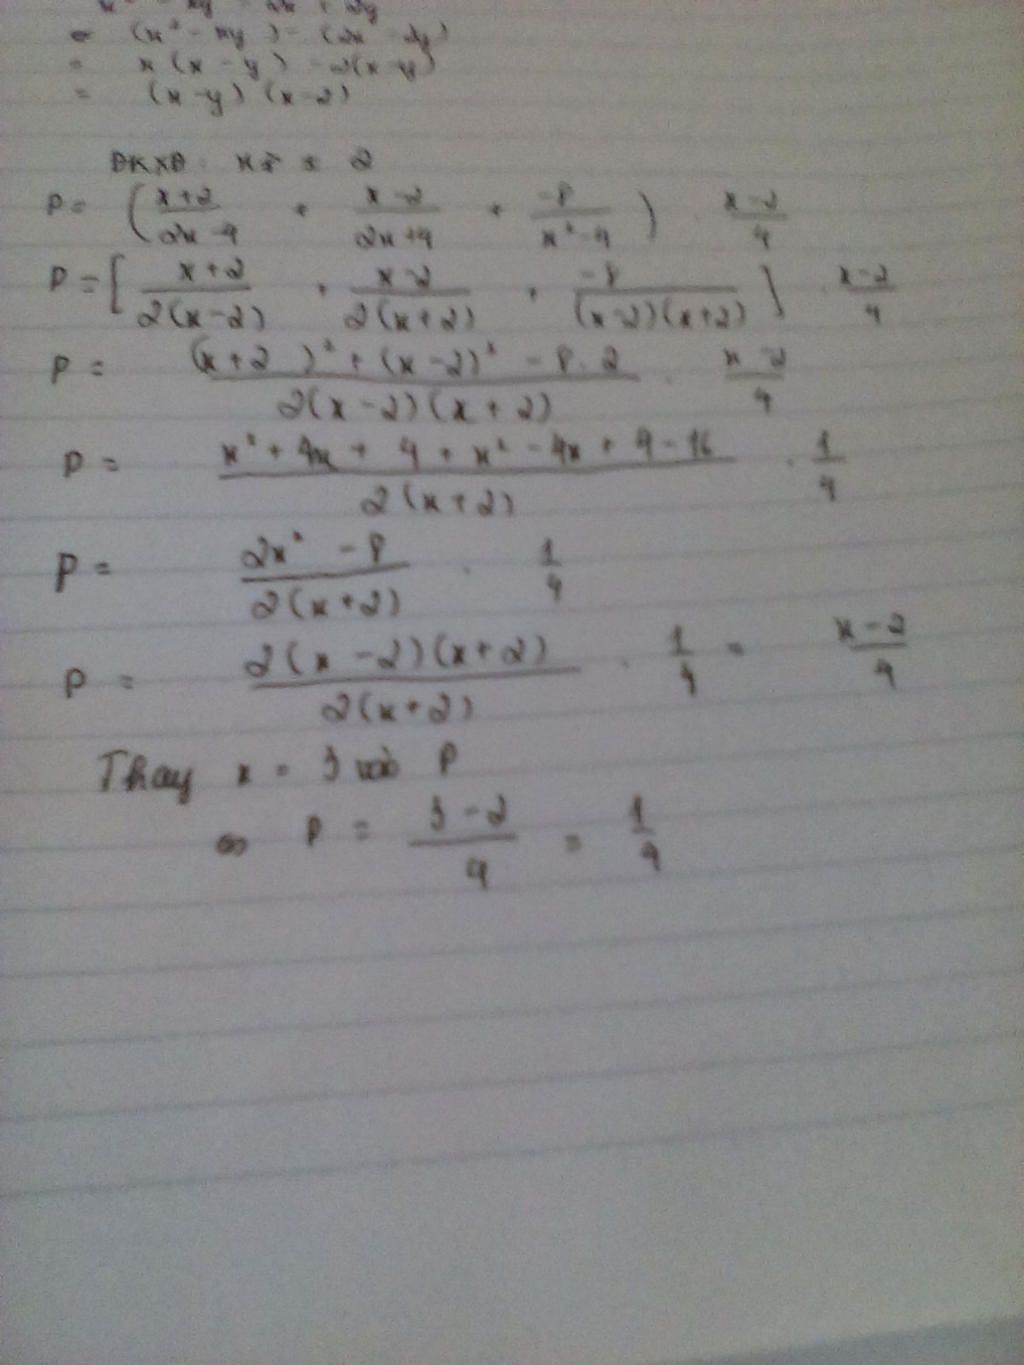 x² - xy - 2x + 2y
= (x² - xy) - (2x - 2y)
= x(x - y) - 2(x - y)
= (x - y)(x - 2)
ĐKXĐ: x ≠ ± 2
P = (x+2/2x-4 + x-2/2x+4 + -8/x²-4) . x-2/4
P = [x+2/2(x-2) + x-2/2(x+2) + -8/(x-2)(x+2)] . x-2/4
P = (x+2)² + (x-2)² - 8.2/2(x-2)(x+2) . x-2/4
P = x² + 4x + 4 + x² - 4x + 4 - 16/2(x+2) . 1/4
P = 2x² - 8/2(x+2) . 1/4
P = 2(x-2)(x+2)/2(x+2) . 1/4 = x-2/4
Thay x = 3 vào P
⇔ P = 3-2/4 = 1/4